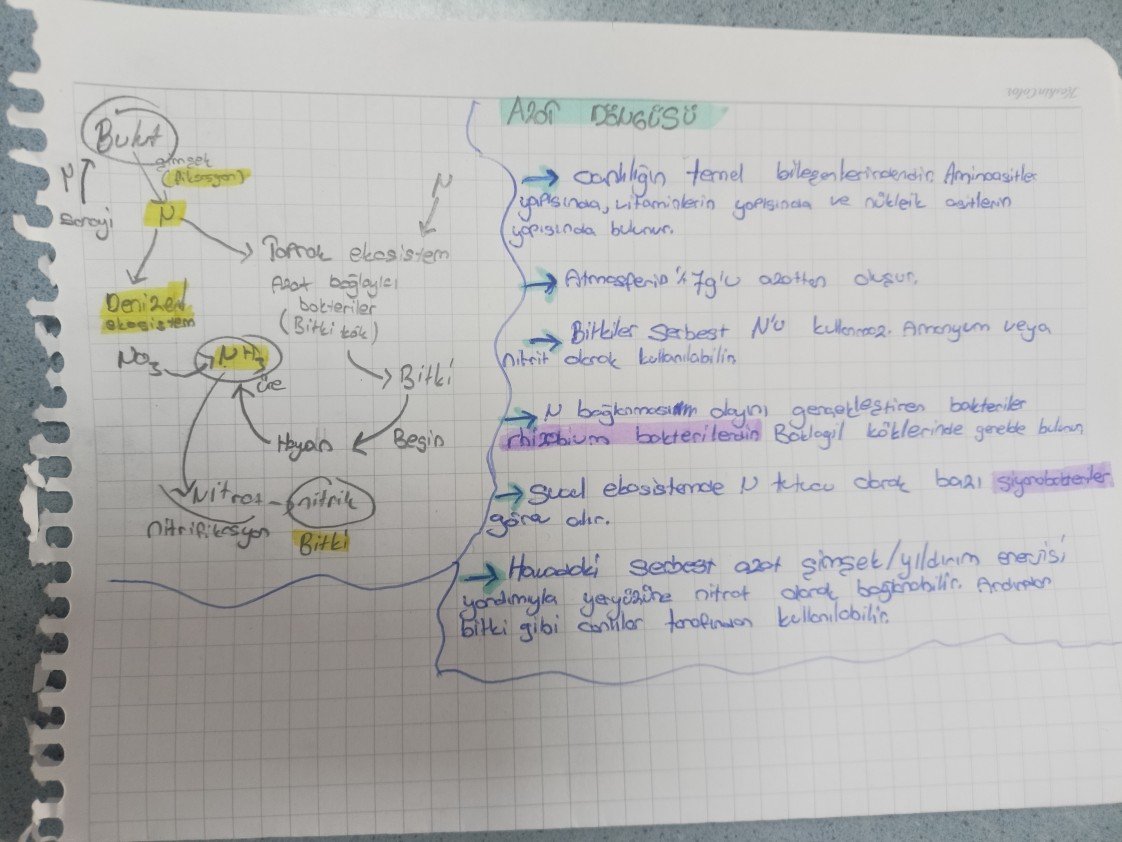 Bulut
şimşek
(fiksasyon)
N
sanayi
N
N
Toprak ekosistem
Azot bağlayıcı
bakteriler
(Bitki kök)
Denizel
ekosistem
NO3
NH3
üre
Bitki
Hayvan
Besin
Nitrat - nitrik
nitrifikasyon
Bitki
AZOT DÖNGÜSÜ
→ canlılığın temel bileşenlerindendir. Aminoasitler
yapısında, vitaminlerin yapısında ve nükleik asitlerin
yapısında bulunur.
→ Atmosferin %79'u azotten oluşur.
→ Bitkiler serbest N'u kullanmaz. Amonyum veya
nitrit olarak kullanılabilir.
→ N bağlanması olayını gerçekleştiren bakteriler
rhizobium bakterilerdir. Baklagil köklerinde bulunur
→ Sucul ekosistemde N tutucu olarak bazı siyanobakteriler
görev alır.
→ Havadaki serbest azot şimşek/yıldırım enerjisi
yardımıyla yeryüzüne nitrat olarak bağlanabilir. Ardından
bitki gibi canlılar tarafından kullanılabilir.
KeskinColor